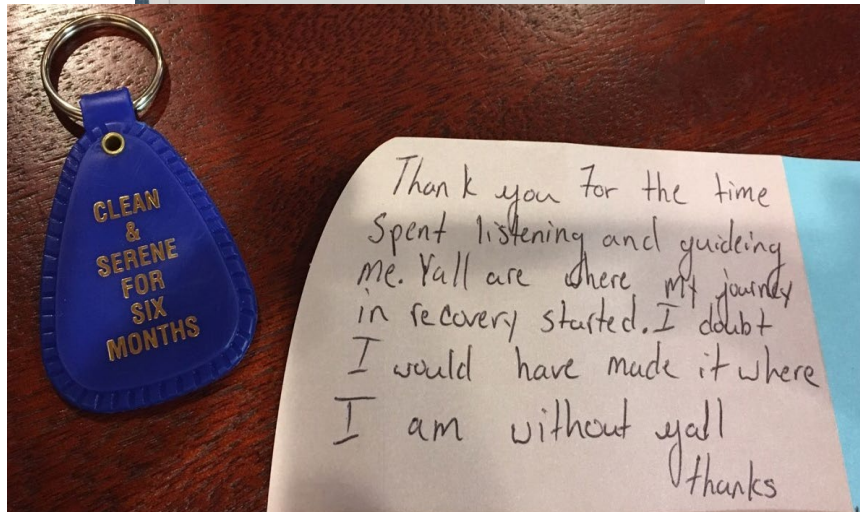 CLEAN
&
SERENE
FOR
SIX
MONTHS
Thank you For the time
Spent listening and guideing
me. Yall are where my journey
in recovery started. I doubt
I would have made it where
I am without yall
thanks